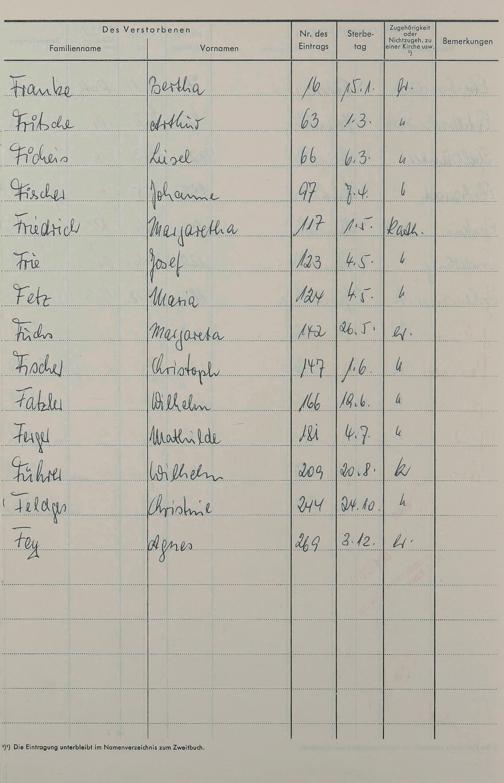 Des Verstorbenen
Familienname Vornamen Nr. des Eintrags Sterbe-tag Zugehörigkeit oder Nichtzugeh. zu einer Kirche usw. ¹) Bemerkungen
Franke Bertha 16 15.1. gr.
Fritsche Arthur 63 1.3. "
Liesel 66 6.3. "
Fischer Johanne 97 7.4. "
Friedrich Margaretha 117 1.5. kath.
Frie Josef 123 4.5. "
Fetz Maria 124 4.5. "
Fuchs Margareta 142 26.5. ev.
Fischer Christoph 147 1.6. "
Fatzler Wilhelm 166 19.6. "
Ferger Mathilde 181 4.7. "
Führer Wilhelm 209 20.8. k
Feldges Christine 244 24.10. "
Fey Agnes 269 3.12. ev.
¹) Die Eintragung unterbleibt im Namenverzeichnis zum Zweitbuch.